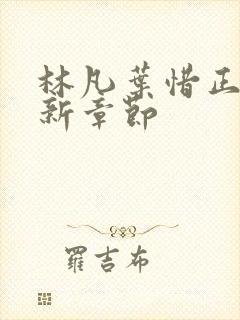 林凡葉惜正
新章節
羅吉布